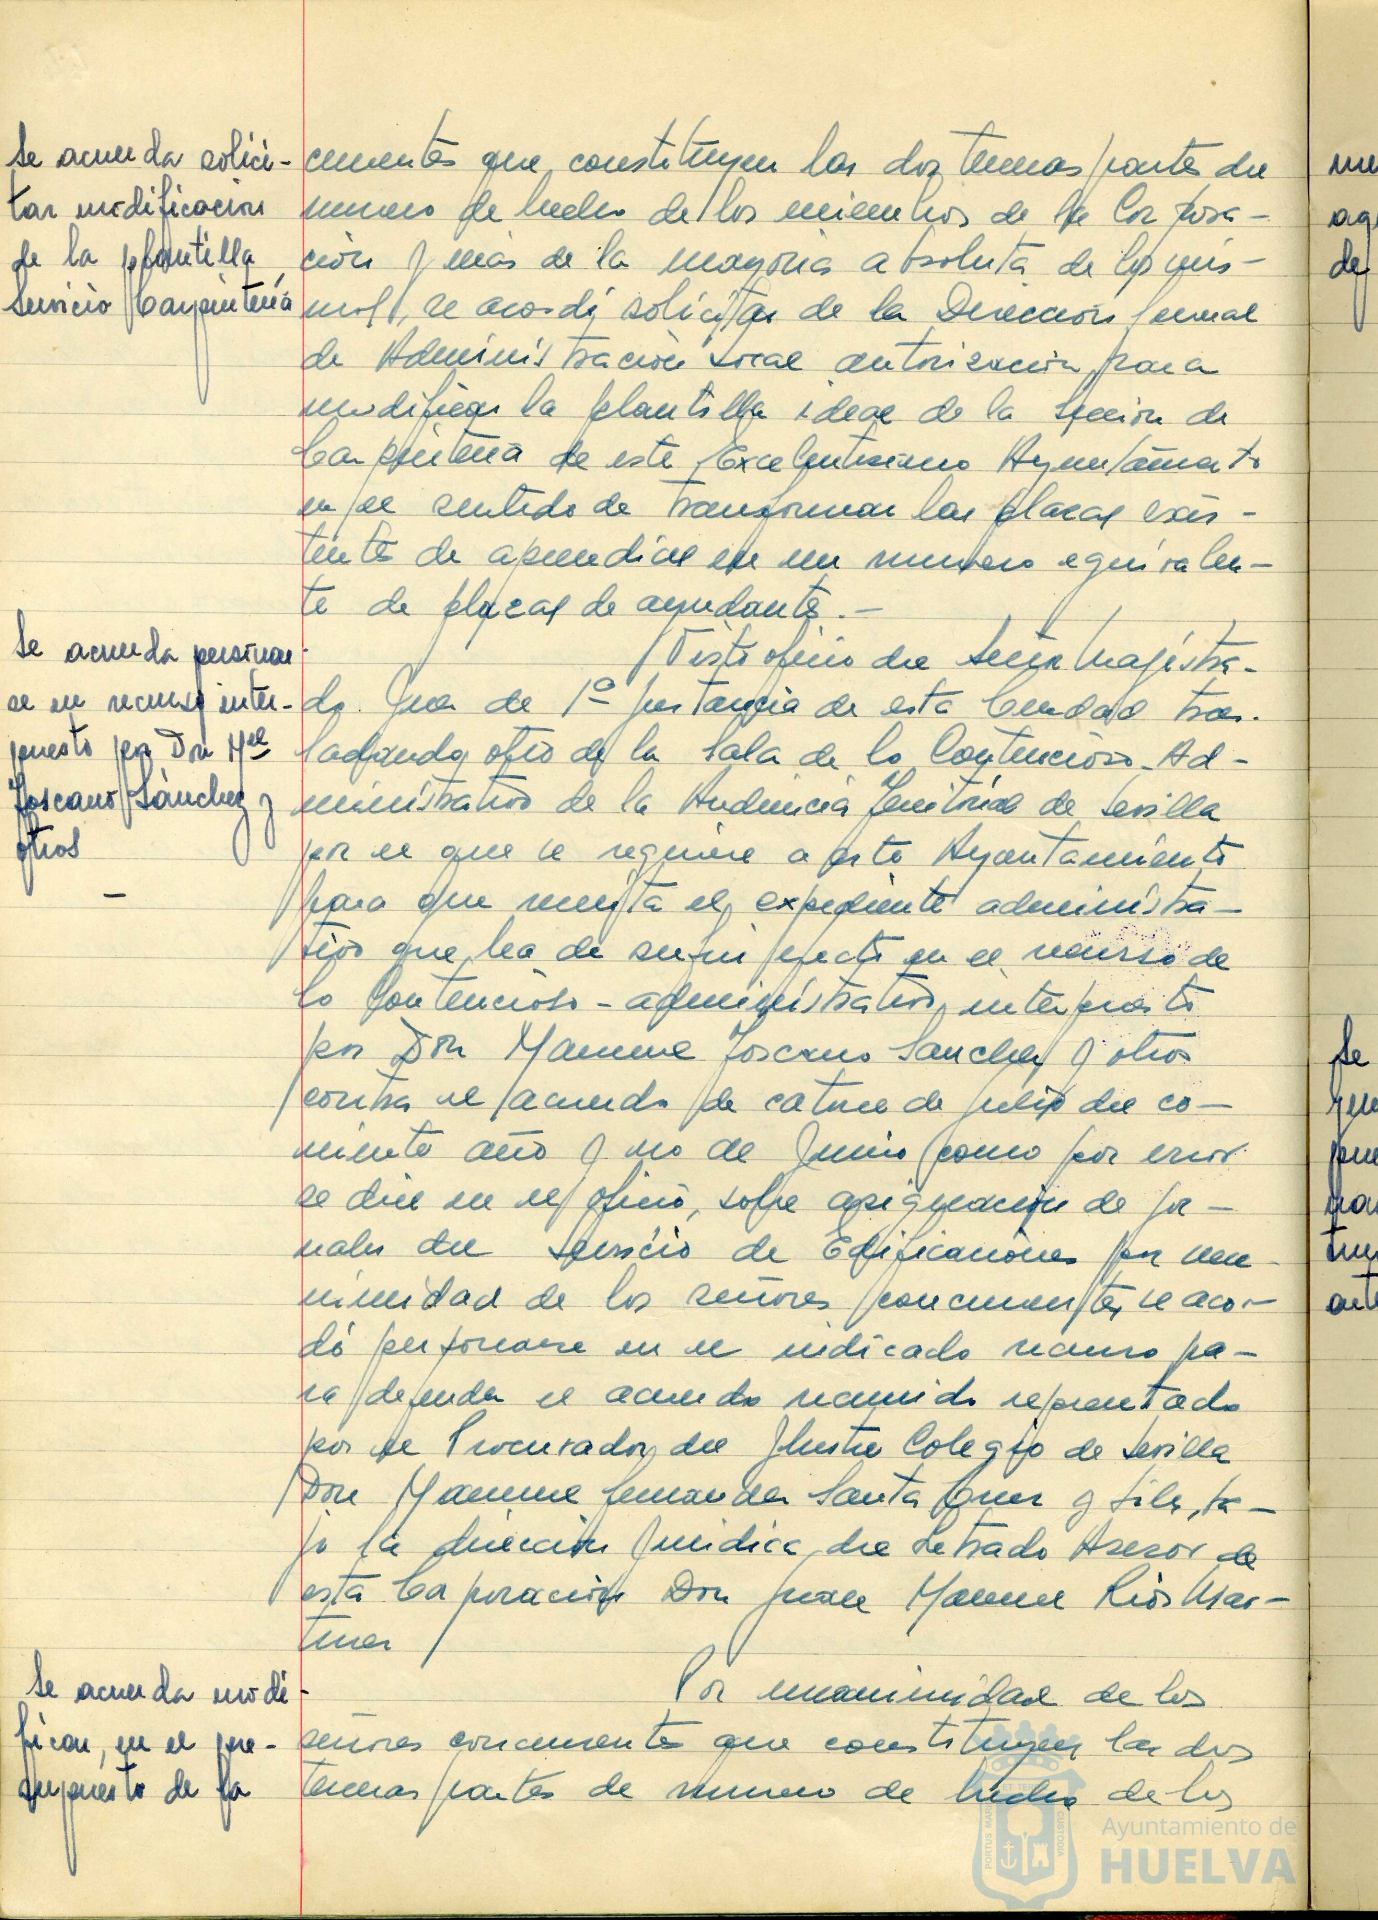 Se acuerda solici-
tar modificacion
de la plantilla
Servicio Carpintería
currentes que constituyen las dos terceras partes del
numero de hecho de los miembros de la Corpora-
ción y más de la mayoria absoluta de los mis-
mos, se acordó solicitar de la Dirección General
de Administración Local autorizacion para
modificar la plantilla ideal de la Seccion de
Carpinteria de este Excelentisimo Ayuntamiento
en el sentido de transformar las plazas exis-
tentes de aprendices en un numero equivalen-
te de plazas de ayudantes.-
Se acuerda personar
se en recurso inter-
puesto por Don Mel
Toscano Sánchez y
otros
Visto oficio del Señor Magistra-
do Juez de 1ª Instancia de esta Ciudad tras-
ladando otro de la Sala de lo Contencioso-Ad-
ministrativo de la Audiencia Territorial de Sevilla
por el que se requiere a este Ayuntamiento
para que remita el expediente administra-
tivo que ha de surtir efecto en el recurso de
lo Contencioso-administrativo interpuesto
por Don Manuel Toscano Sanchez y otros
contra el acuerdo de catorce de julio del co-
rriente año y no de Junio como por error
se dice en el oficio, sobre asignación de jor-
nales del servicio de Edificaciones por una-
nimidad de los señores concurrentes se acor-
dó personarse en el indicado recurso pa-
ra defender el acuerdo recurrido representado
por el Procurador del Ilustre Colegio de Sevilla
Don Manuel Fernandez Santa Cruz y Siles, ba-
jo la dirección Juridica del Letrado Asesor de
esta Corporación Don Juan Manuel Rios Mar-
tinez
Se acuerda modi-
ficar, en el pre-
supuesto de la
Por unanimidad de los
señores concurrentes que constituyen las dos
terceras partes de numero de hecho de los
me
de
Se
PORTUS MARIS
ET TERRAE
CUSTODIA
Ayuntamiento de
HUELVA